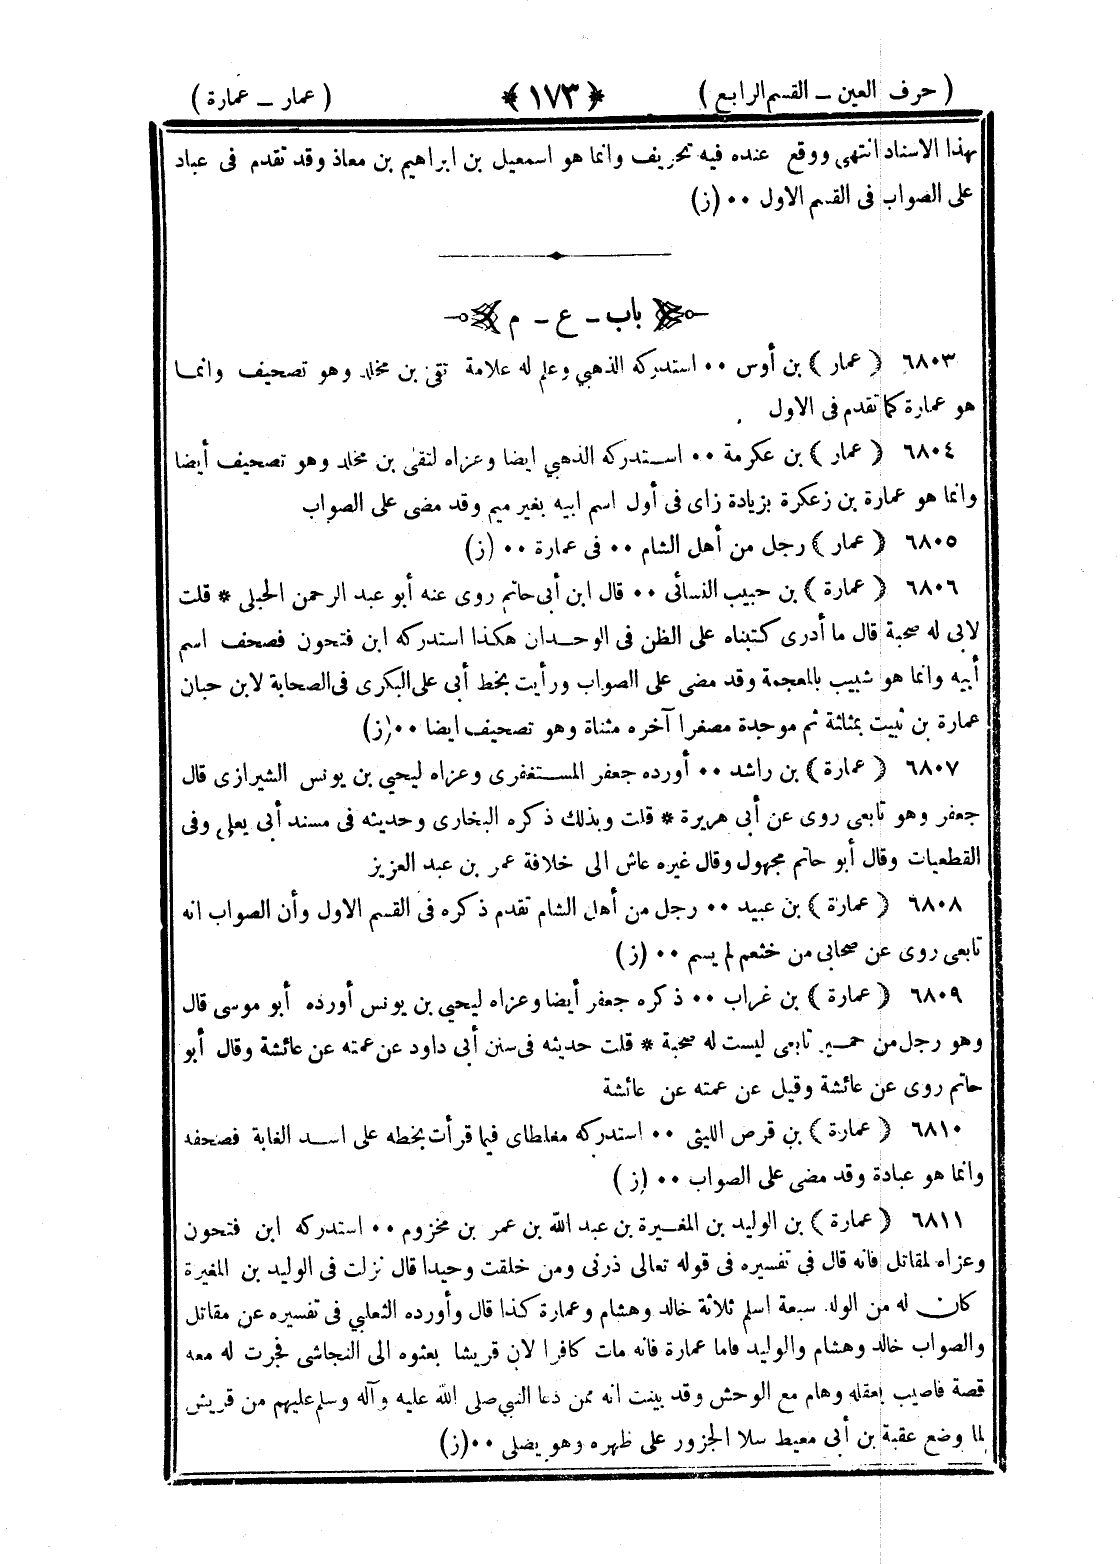 ( حرف العين – القسم الرابع ) ﴿ ١٧٣ ﴾ ( عمار – عمارة )
بهذا الاسناد انتهى ووقع عنده فيه تحريف وانما هو اسمعيل بن ابراهيم بن معاذ وقد تقدم فى عباد
على الصواب فى القسم الاول ٠٠ (ز)
باب – ع – م
٦٨٠٣ ﴿ عمار ﴾ بن أوس ٠٠ استدركه الذهبي وعلم له علامة تقى بن مخلد وهو تصحيف وانما
هو عمارة كما تقدم فى الاول
٦٨٠٤ ﴿ عمار ﴾ بن عكرمة ٠٠ استدركه الذهبي ايضا وعزاه لتقى بن مخلد وهو تصحيف أيضا
وانما هو عمارة بن زعكرة بزيادة زاى فى أول اسم ابيه بغير ميم وقد مضى على الصواب
٦٨٠٥ ﴿ عمار ﴾ رجل من أهل الشام ٠٠ فى عمارة ٠٠ (ز)
٦٨٠٦ ﴿ عمارة ﴾ بن حبيب النسائى ٠٠ قال ابن أبى حاتم روى عنه أبو عبد الرحمن الحبلى * قلت
لابى له صحبة قال ما أدرى كتبناه على الظن فى الوحدان هكذا استدركه ابن فتحون فصحف اسم
أبيه وانما هو شبيب بالمعجمة وقد مضى على الصواب ورأيت بخط أبى على البكرى فى الصحابة لابن حبان
عمارة بن ثبيت بمثلثة ثم موحدة مصغرا آخره مثناة وهو تصحيف ايضا ٠٠ (ز)
٦٨٠٧ ﴿ عمارة ﴾ بن راشد ٠٠ أورده جعفر المستغفرى وعزاه ليحيي بن يونس الشيرازى قال
جعفر وهو تابعى روى عن أبى هريرة * قلت وبذلك ذكره البخارى وحديثه فى مسند أبى يعلى وفى
القطعيات وقال أبو حاتم مجهول وقال غيره عاش الى خلافة عمر بن عبد العزيز
٦٨٠٨ ﴿ عمارة ﴾ بن عبيد ٠٠ رجل من أهل الشام تقدم ذكره فى القسم الاول وأن الصواب انه
تابعى روى عن صحابى من خثعم لم يسم ٠٠ (ز)
٦٨٠٩ ﴿ عمارة ﴾ بن غراب ٠٠ ذكره جعفر أيضا وعزاه ليحيي بن يونس أورده أبو موسى قال
وهو رجل من حمير تابعى ليست له صحبة * قلت حديثه فى سنن أبى داود عن عمته عن عائشة وقال أبو
حاتم روى عن عائشة وقيل عن عمته عن عائشة
٦٨١٠ ﴿ عمارة ﴾ بن قرص الليثى ٠٠ استدركه مغلطاى فيما قرأت بخطه على اسد الغابة فصحفه
وانما هو عبادة وقد مضى على الصواب ٠٠ (ز)
٦٨١١ ﴿ عمارة ﴾ بن الوليد بن المغيرة بن عبد الله بن عمر بن مخزوم ٠٠ استدركه ابن فتحون
وعزاه لمقاتل فانه قال فى تفسيره فى قوله تعالى ذرنى ومن خلقت وحيدا قال نزلت فى الوليد بن المغيرة
كان له من الولد سبعة اسلم ثلاثة خالد وهشام وعمارة كذا قال وأورده الثعلبي فى تفسيره عن مقاتل
والصواب خالد وهشام والوليد فاما عمارة فانه مات كافرا لان قريشا بعثوه الى النجاشى فجرت له معه
قصة فاصيب بعقله وهام مع الوحش وقد بينت انه ممن دعا النبي صلى الله عليه وآله وسلم عليهم من قريش
لما وضع عقبة بن أبى معيط سلا الجزور على ظهره وهو يصلى ٠٠ (ز)